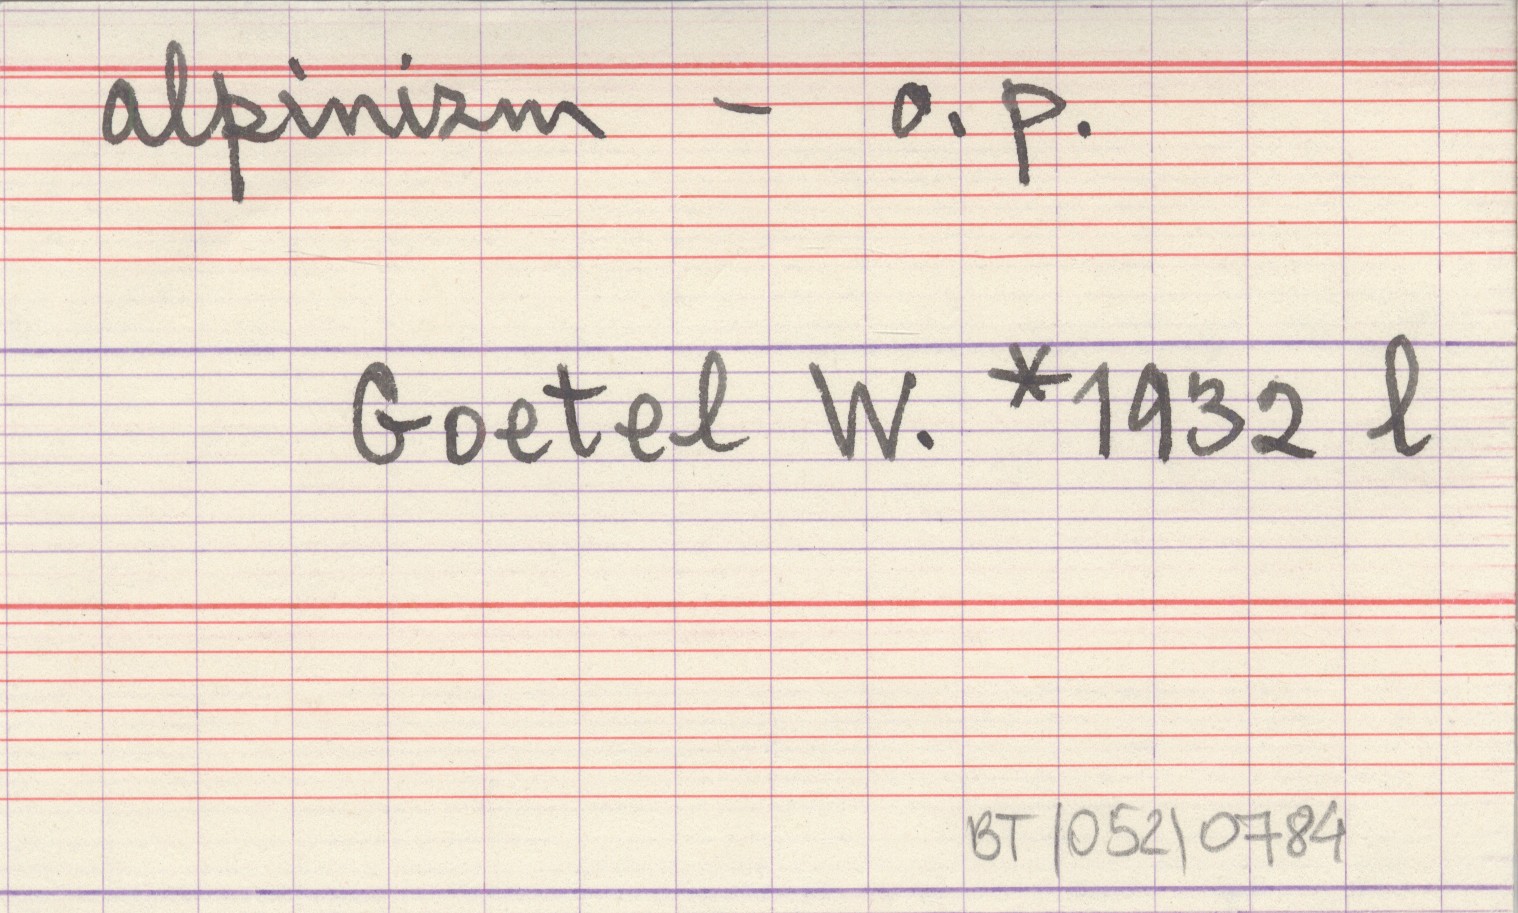 alpinizm - o. p.
Goetel W. *1932 l
BT/052\0784